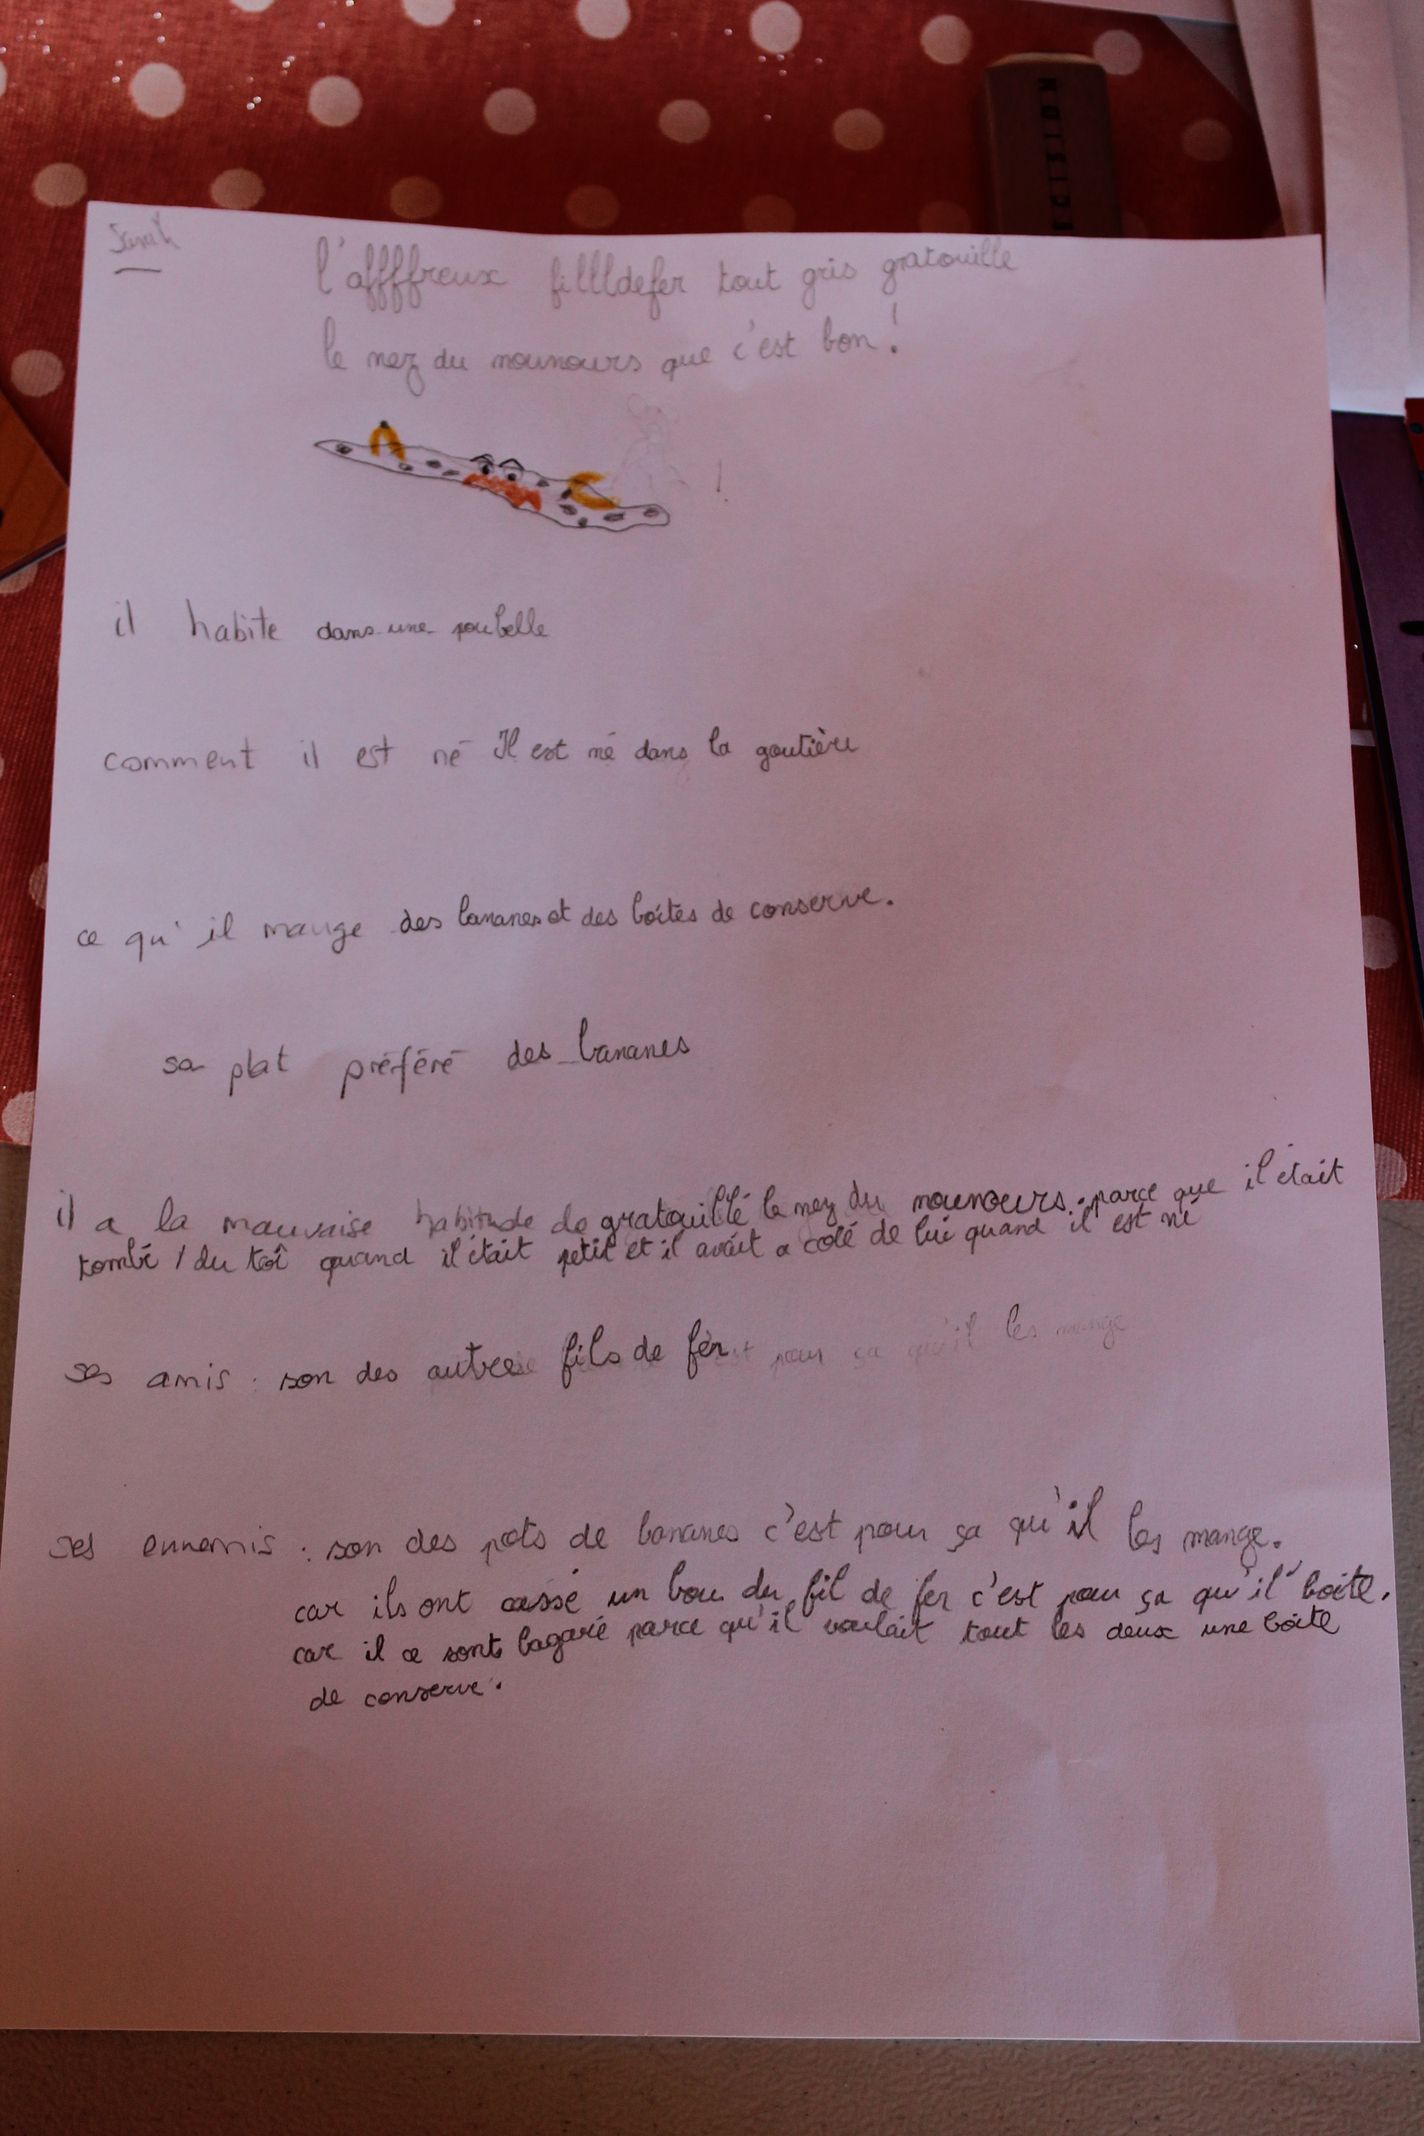 Sarah
l'affffreux fillldefer tout gris gratouille
le nez du nounours que c'est bon !
!
il habite dans une poubelle
comment il est né Il est né dans la goutière
ce qu'il mange des bananes et des boites de conserve.
sa plat préféré des bananes
il a la mauvaise habitude de gratouillé le nez du nounours. parce que il était
tombé / du toî quand il était petit et il avait a coté de lui quand il est né
ses amis : son des autres fils de fer est pour ça qu'il les mange
ses ennemis : son des pots de bananes c'est pour ça qu'il les mange.
car ils ont cassé un bou du fil de fer c'est pour ça qu'il boite.
car il ce sont bagaré parce qu'il voulait tout les deux une boite
de conserve.